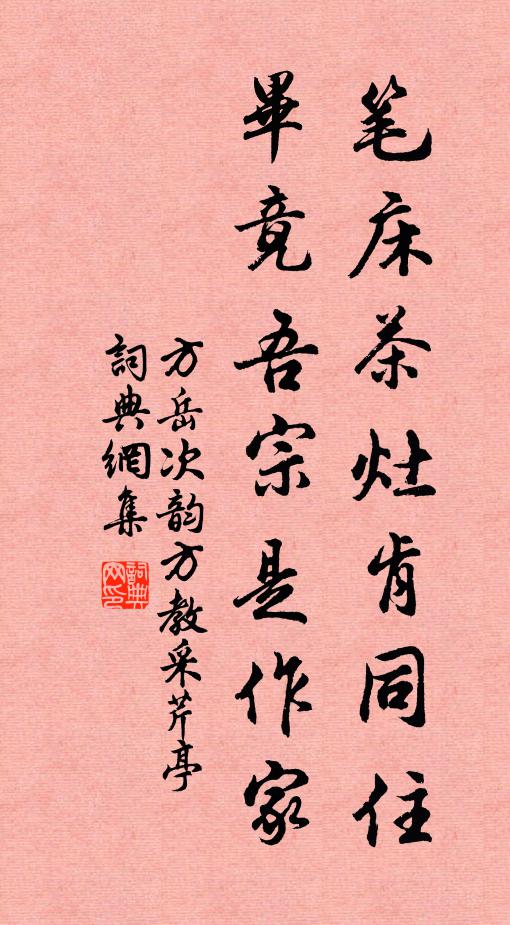 笔床茶灶肯同住
畢竟吾宗是作家
方岳次韵方教采芹亭
詞典網集
詞典网印